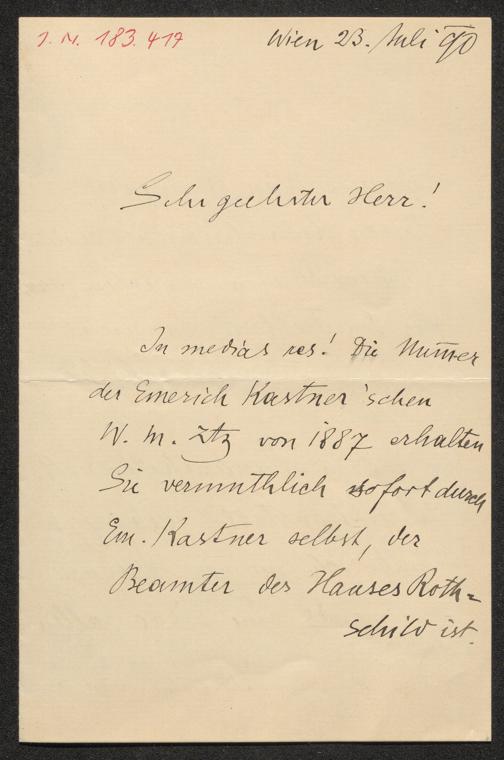 J. N. 183.417
Wien 23. Juli 90
Sehr geehrter Herr!
In medias res! Die Num̅er
der Emerich Kastner'schen
W. M. Ztg von 1887 erhalten
Sie vermuthlich sofort durch
Em. Kastner selbst, der
Beamter des Hauses Roth=
schild ist.